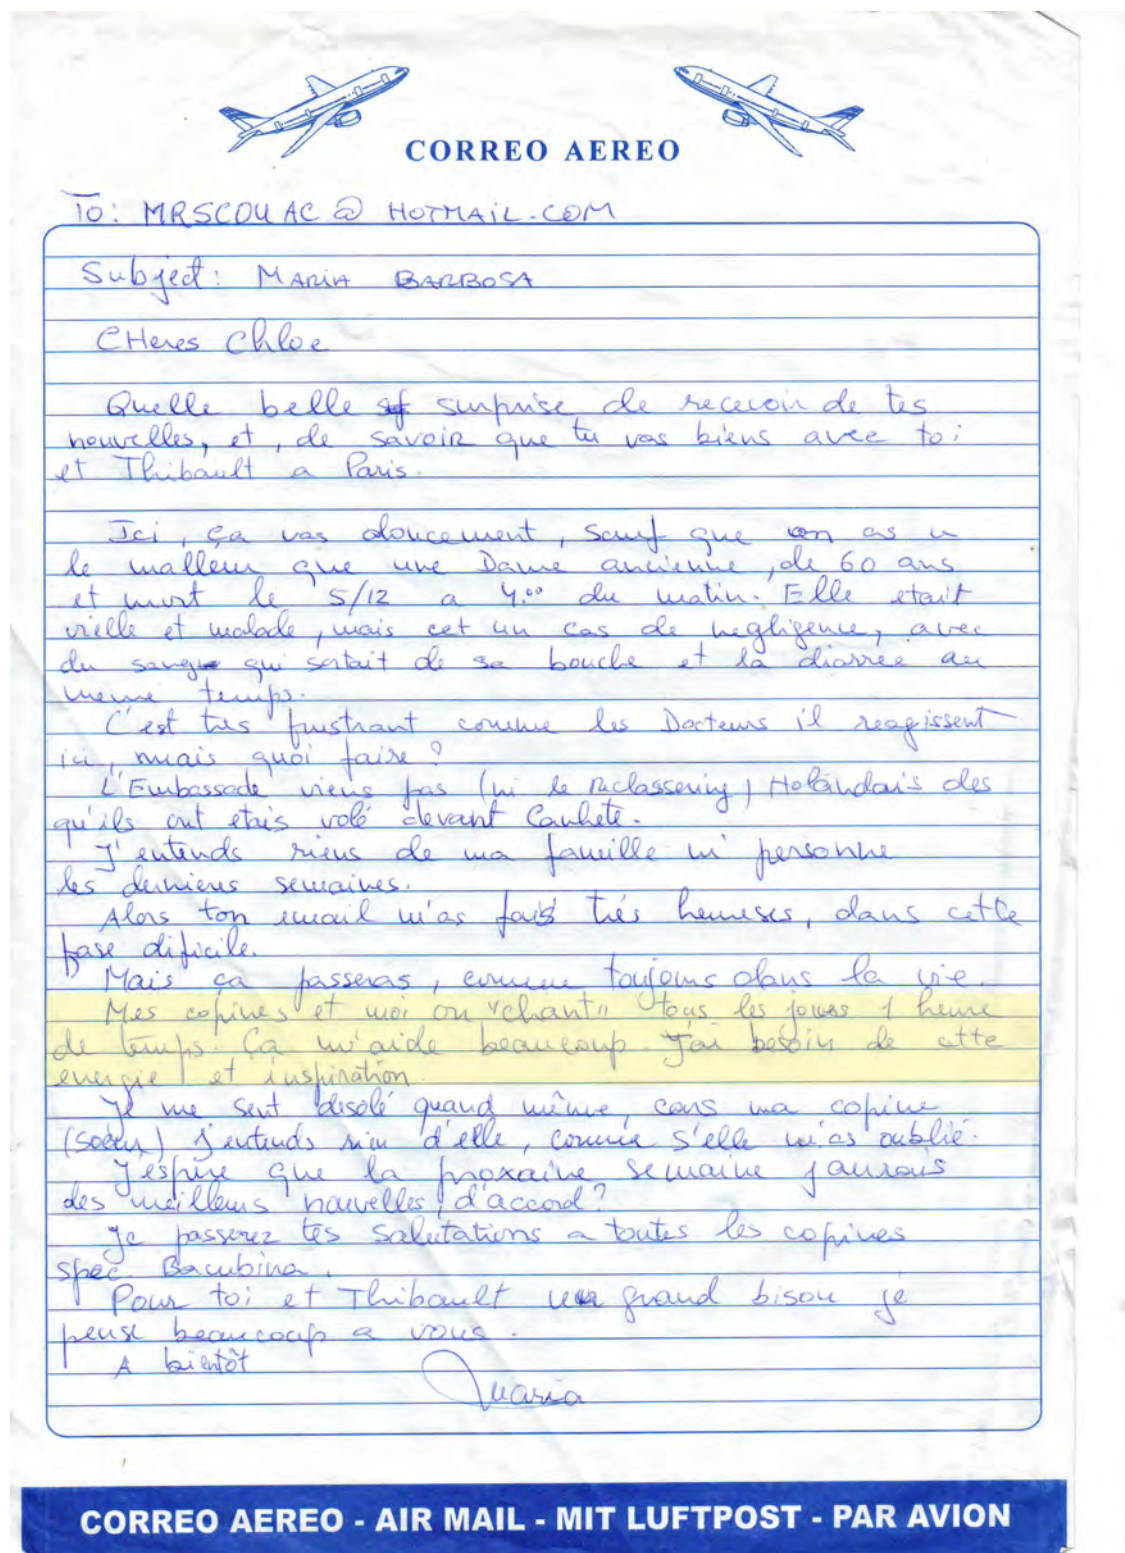 CORREO AEREO
To: MRSCOUAC@HOTMAIL.COM
Subject: MARIA BARBOSA
CHeres Chloe
Quelle belle surprise de recevoir de tes
nouvelles, et, de savoir que tu vas biens avec toi
et Thibault a Paris.
Ici, ça vas doucement, sauf que on as u
le malleur que une Dame ancienne, de 60 ans
et mort le 5/12 a 4.00 du matin. Elle etait
vielle et malade, mais cet un cas de negligence, avec
du sang qui sortait de sa bouche et la diarrée au
meme temps.
C'est tres frustrant comme les Docteurs il reagissent
ici, mais quoi faire?
L'Embassade viens pas (ni le reclassering) Holandais des
qu'ils ont etais volé devant Cañhete.
J'entends riens de ma famille ni personne
les dernieres semaines.
Alors ton email m'as fais trés heureses, dans cette
fase dificile.
Mais ça passeras, comme toujours dans la vie.
Mes copines et moi on "chant" tous les jours 1 heure
de temps. Ça m'aide beaucoup. J'ai besoin de cette
energie et inspiration.
Je me sent desolé quand même, cars ma copine
(soeur) j'entends rien d'elle, comme s'elle m'as oublié.
J'espere que la proxaine semaine j'aurais
des meilleurs nouvelles, d'accord?
Je passerez tes salutations a toutes les copines
spec. Bambina.
Pour toi et Thibault un grand bisou je
pense beaucoup a vous.
A bientôt
Maria
CORREO AEREO - AIR MAIL - MIT LUFTPOST - PAR AVION